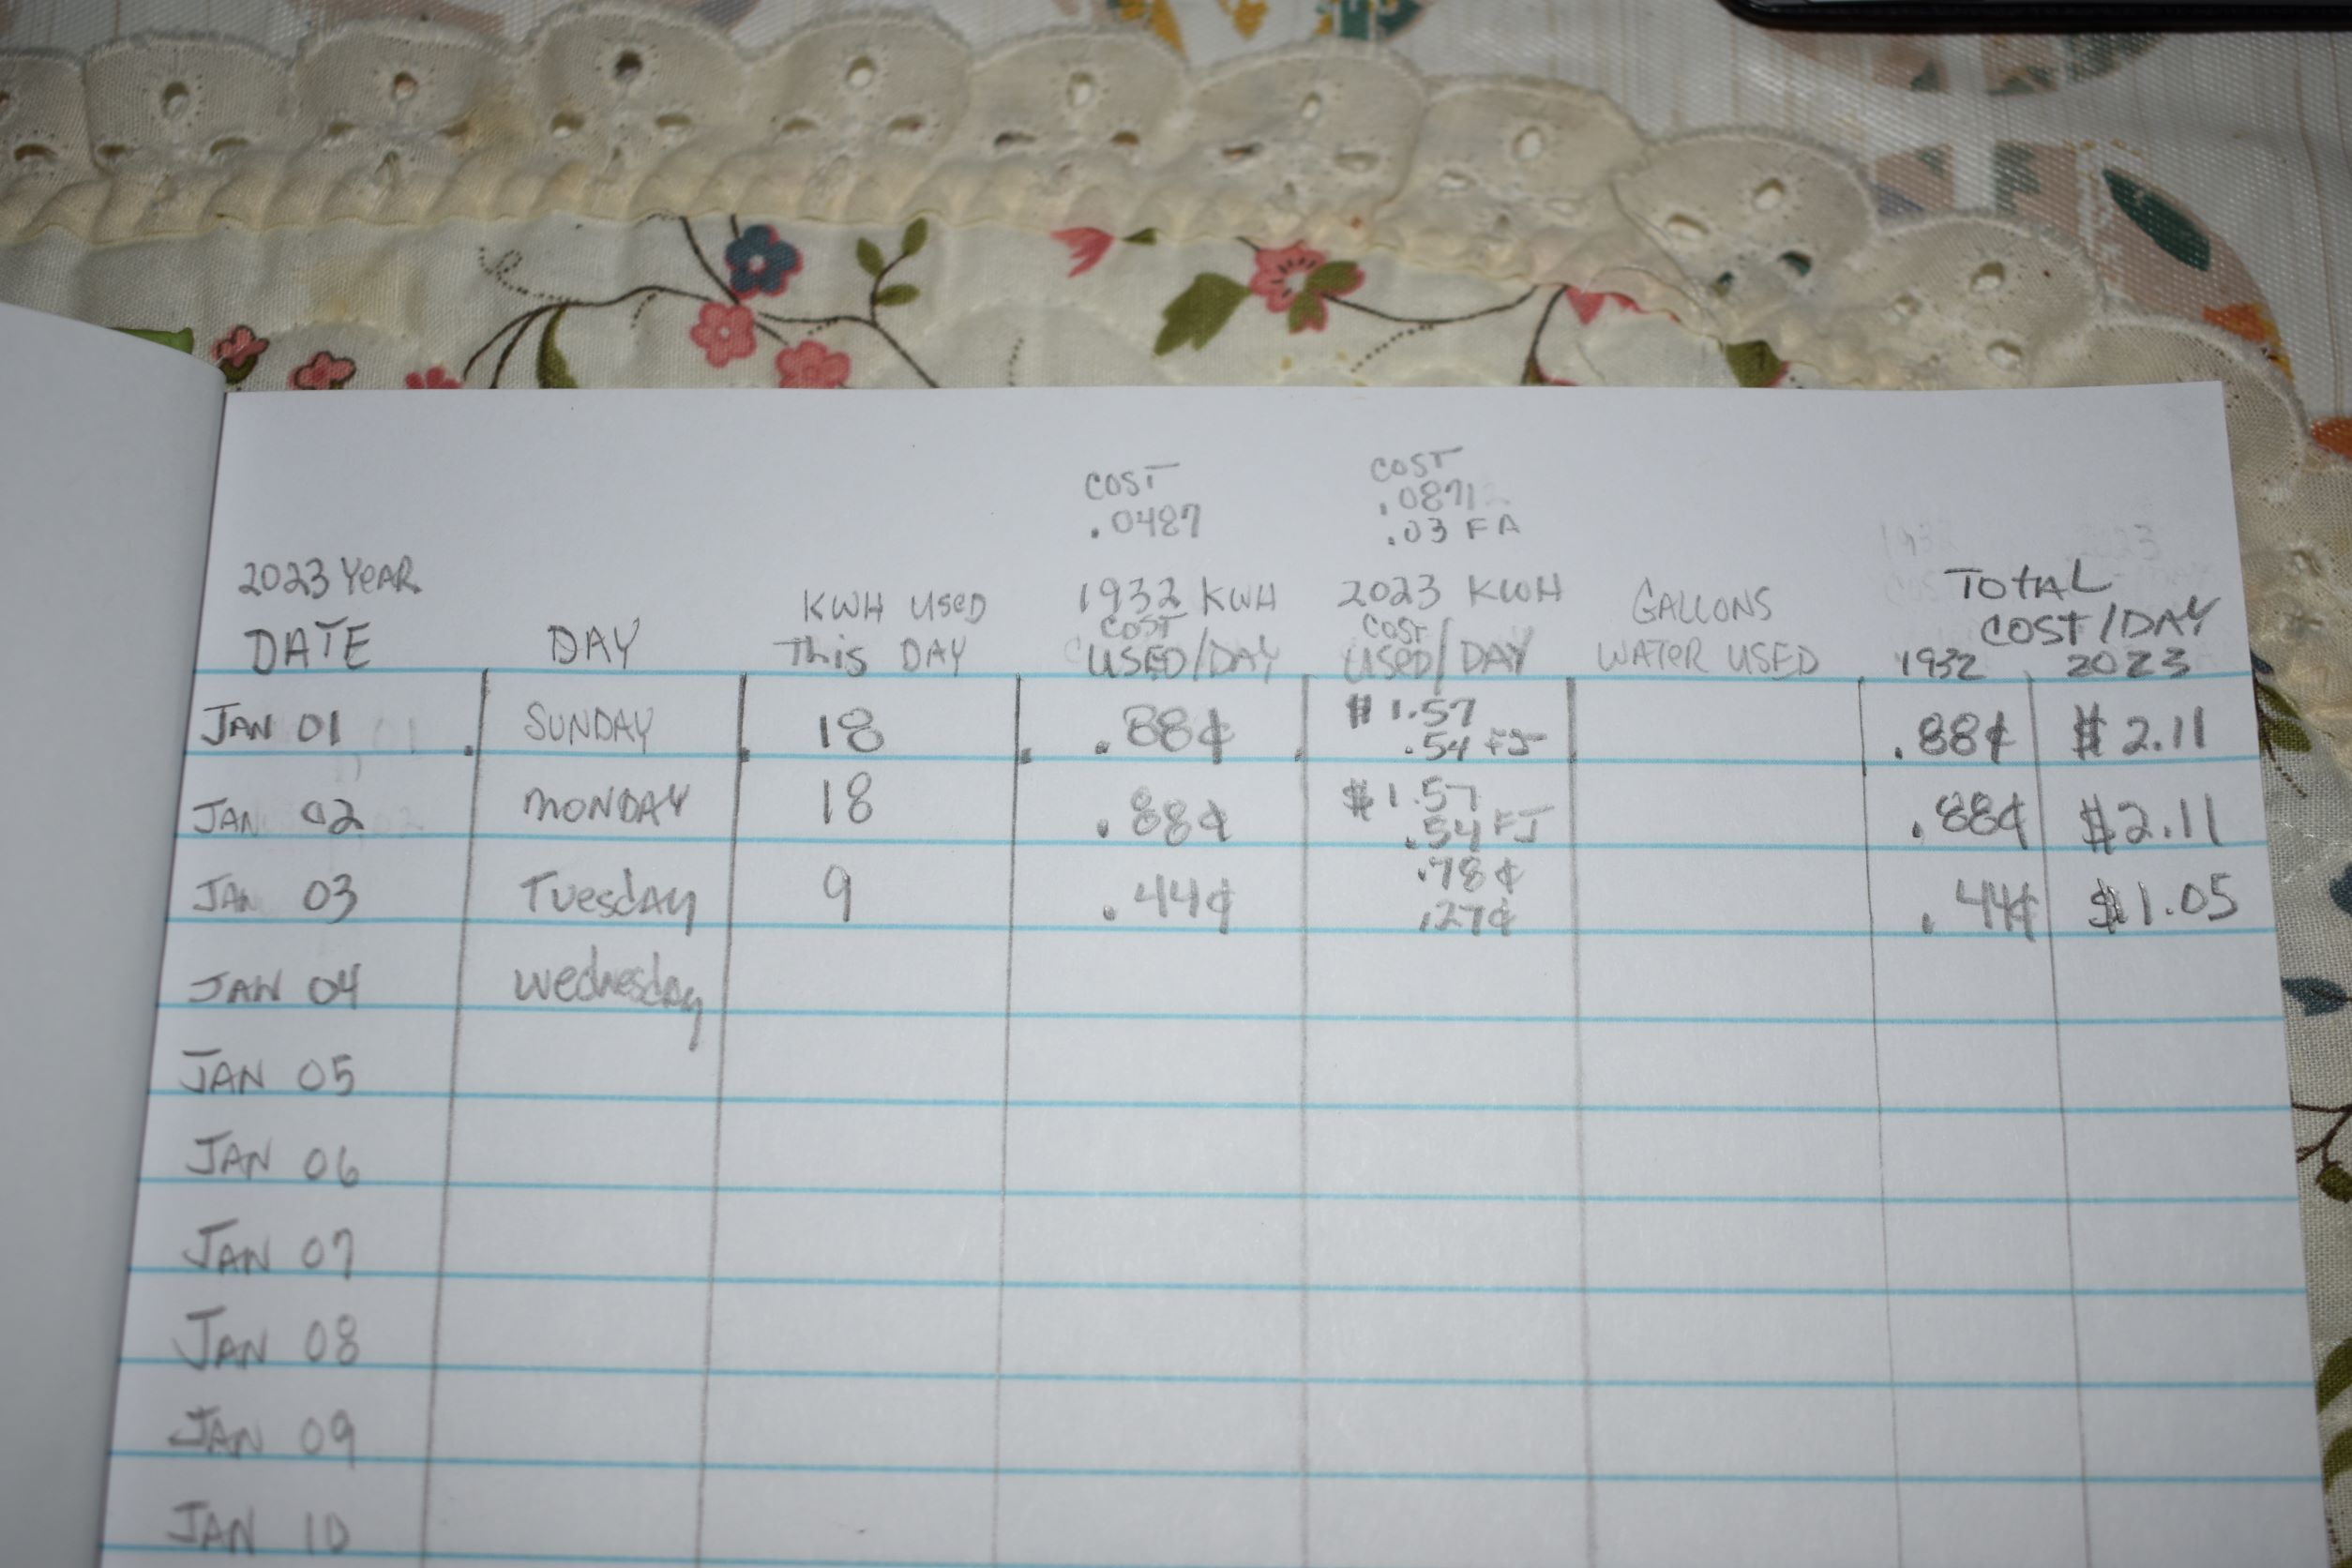 COST COST
.0487 .0871
.03 FA
2023 YEAR KWH USED 1932 KWH 2023 KWH GALLONS TOTAL
DATE DAY This DAY COST USED/DAY COST USED/DAY WATER USED COST/DAY
1932 2023
JAN 01 SUNDAY 18 .88¢ $1.57 .88¢ $2.11
.54 FJ
JAN 02 MONDAY 18 .88¢ $1.57 .88¢ $2.11
.54 FJ
JAN 03 Tuesday 9 .44¢ .78¢ .44¢ $1.05
.27¢
JAN 04 Wednesday
JAN 05
JAN 06
JAN 07
JAN 08
JAN 09
JAN 10